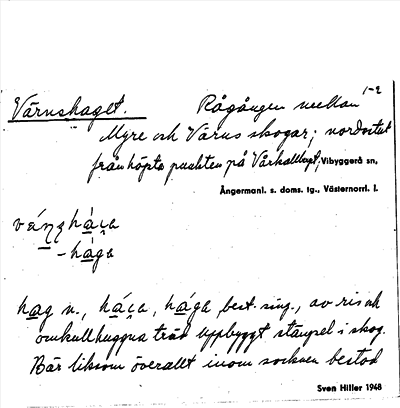 Värnshaget. Rågången mellan 1-2
Myre och Värns skogar; nordostut
från höpta punkten på Vårkallberget, Vibyggerå sn,
Ångermanl. s. doms. tg., Västernorrl. l.
-hága
hag n., best. sing., av ris och
omkullhuggna träd uppbyggt stängsel i skog.
Bär liksom överallt inom socknen bestod
Sven Hiller 1948